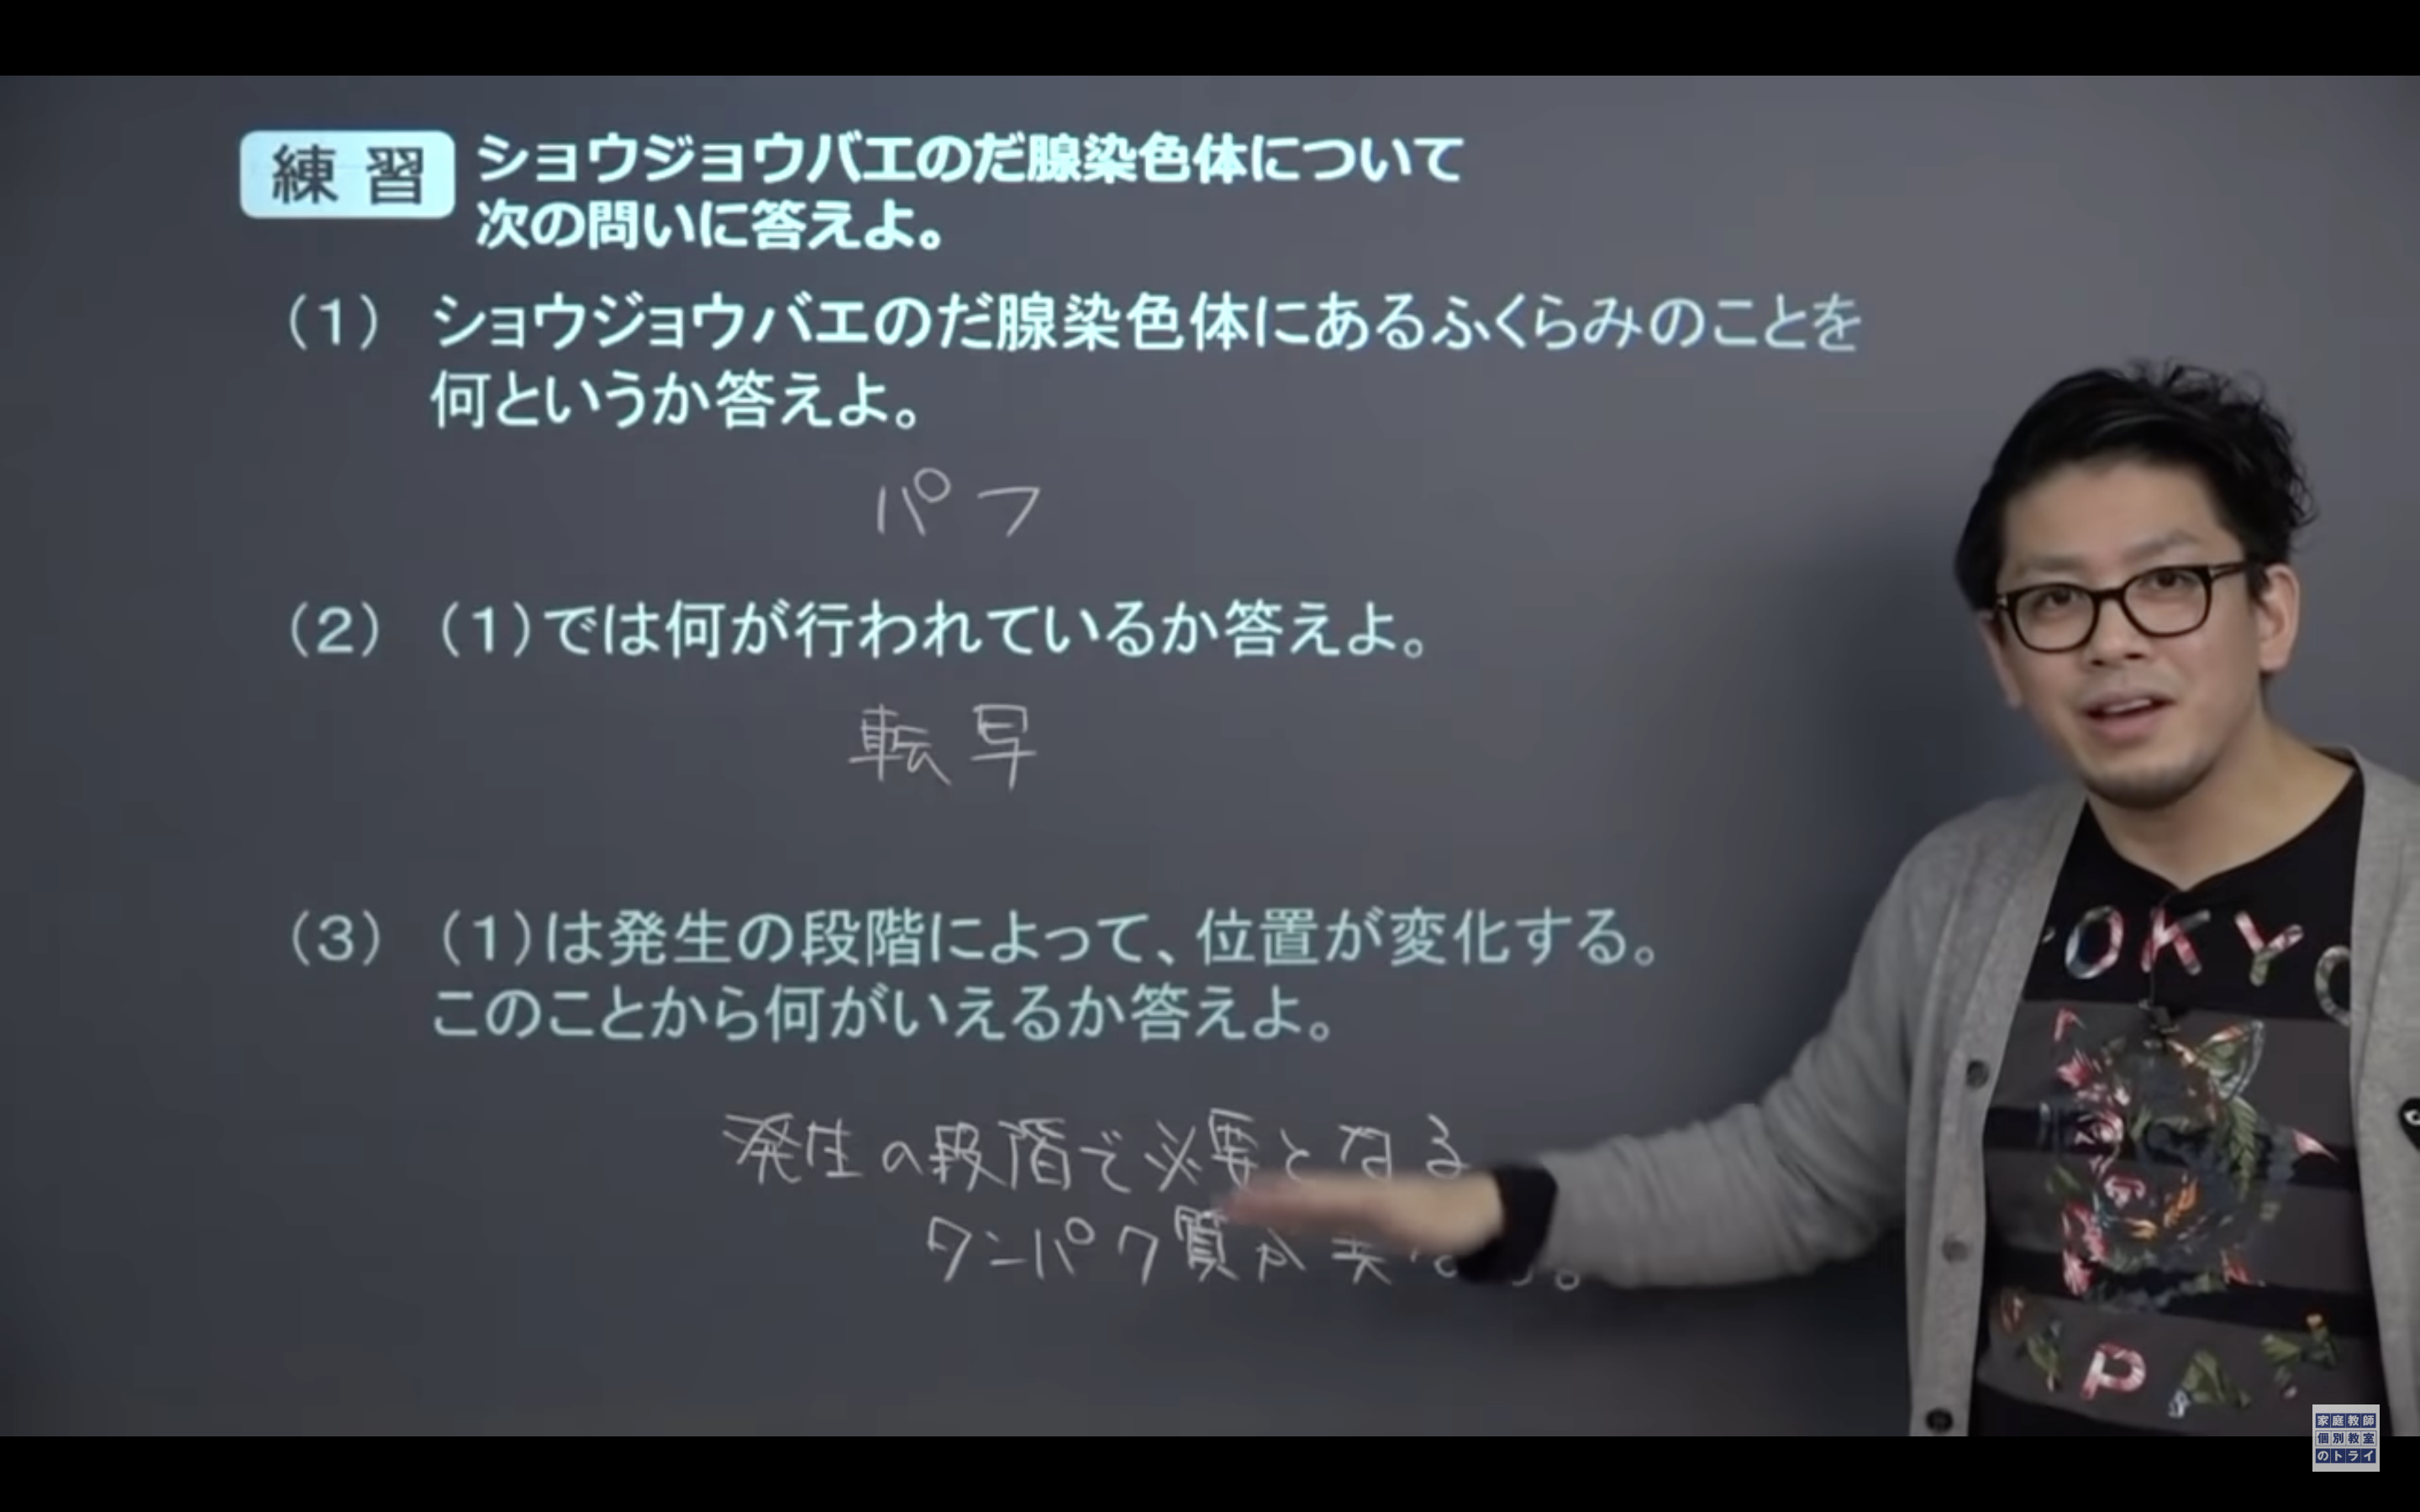 練習
ショウジョウバエのだ腺染色体について
次の問いに答えよ。
(1) ショウジョウバエのだ腺染色体にあるふくらみのことを
何というか答えよ。
パフ
(2) (1)では何が行われているか答えよ。
転写
(3) (1)は発生の段階によって、位置が変化する。
このことから何がいえるか答えよ。
発生の段階で必要となる
タンパク質が
TOKYO
PA
家庭教師
個別教室
のトライ